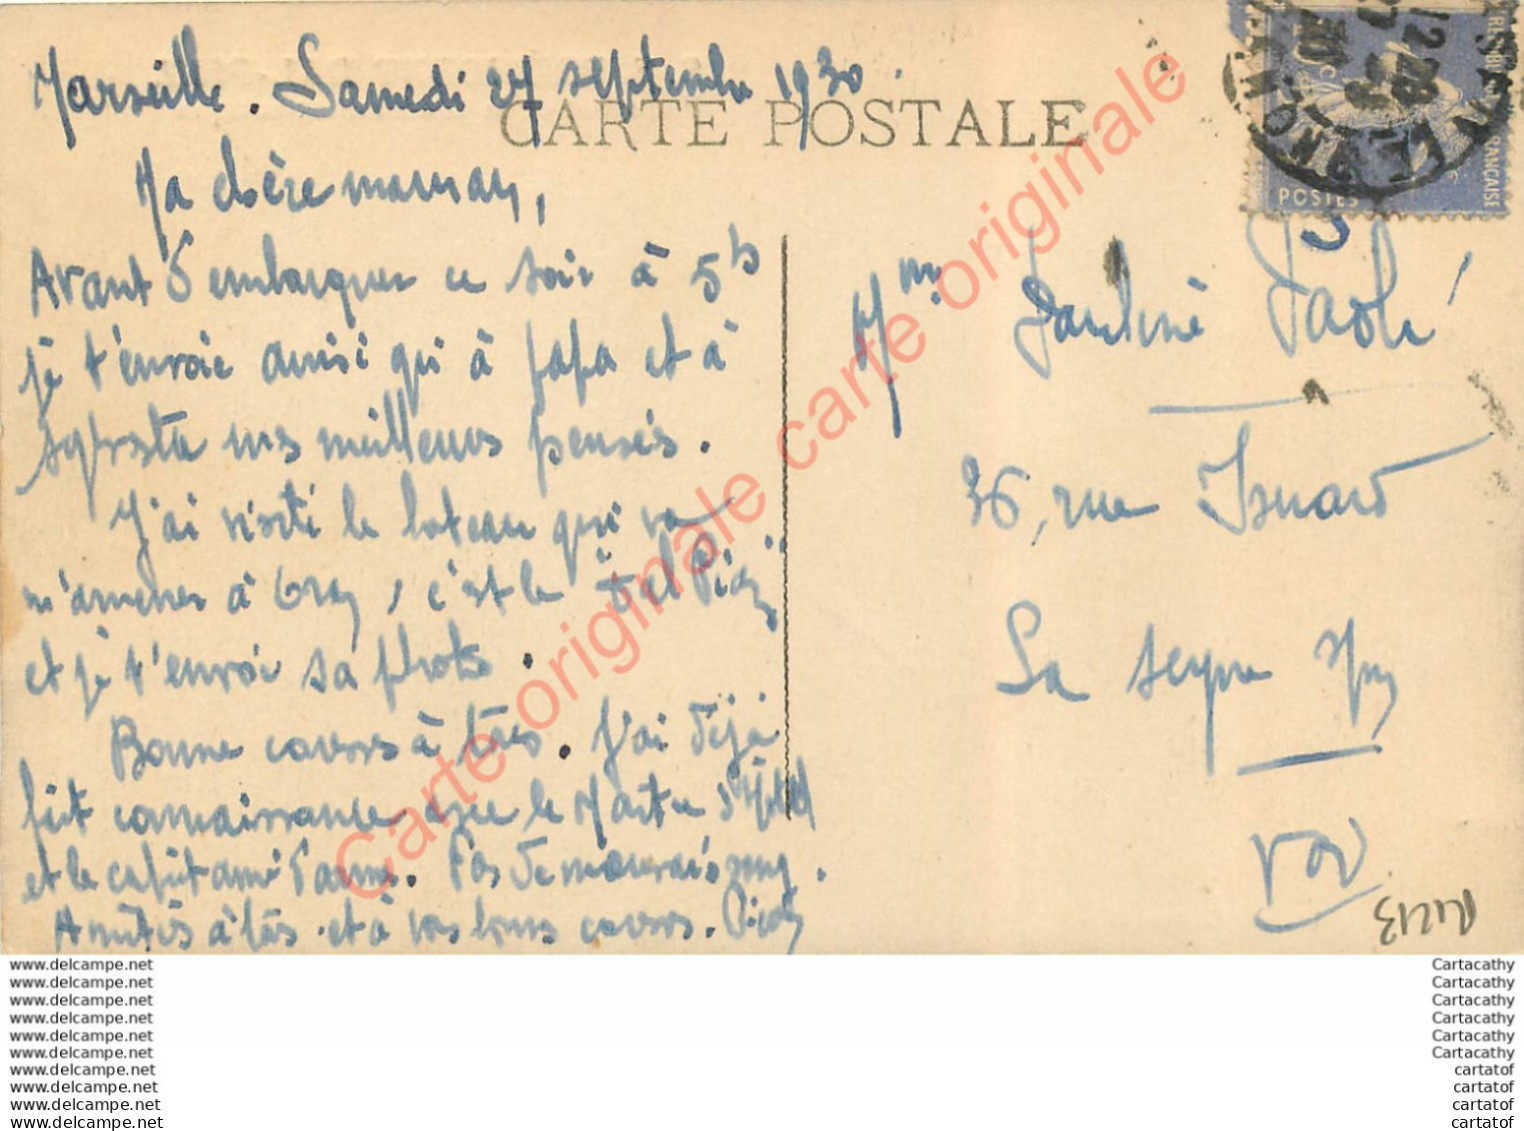 CARTE POSTALE
Marseille. Samedi 27 septembre 1930.
Ma chère maman,
Avant d'embarquer ce soir à 5h
je t'envoie ainsi qu'à papa et à
mes meilleures pensées.
J'ai visité le bateau qui va
m'amener à Oran, c'est le
et je t'envoie sa photo.
Bonne à tous. J'ai déjà
fait connaissance avec le Maître d'Hôtel
et le capitaine d'arme. Pas de mauvais sang.
Amitiés à tous et à vous tous
Mme Pauline Paoli
36, rue Isnard
La Seyne s/mer
Var
POSTES
FRANÇAISE
Carte originale carte originale carte originale
www.delcampe.net
www.delcampe.net
www.delcampe.net
www.delcampe.net
www.delcampe.net
www.delcampe.net
www.delcampe.net
www.delcampe.net
www.delcampe.net
www.delcampe.net
Cartacathy
Cartacathy
Cartacathy
Cartacathy
Cartacathy
Cartacathy
cartatof
cartatof
cartatof
cartatof